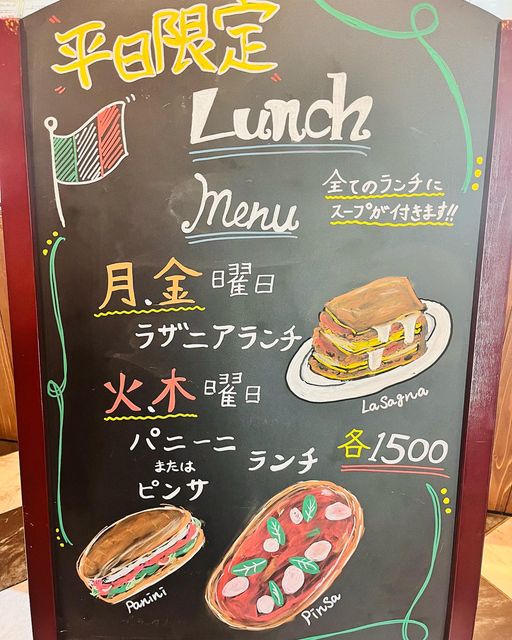 平日限定
Lunch
Menu
全てのランチに
スープが付きます!!
月、金曜日
ラザニアランチ
Lasagna
火、木曜日
パニーニ
または
ピンサ
ランチ
各1500
Panini
Pinsa